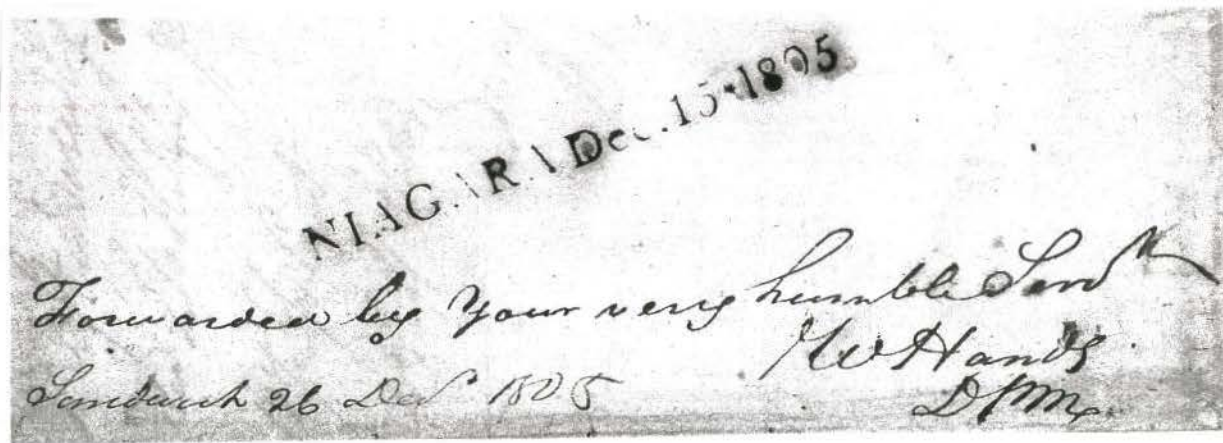 NIAGARA Dec. 15·1805
Forwarded by Your very humble Serv<sup>t</sup>
W Hands
Sandwich 26 Dec<sup>r</sup> 1805
DPM